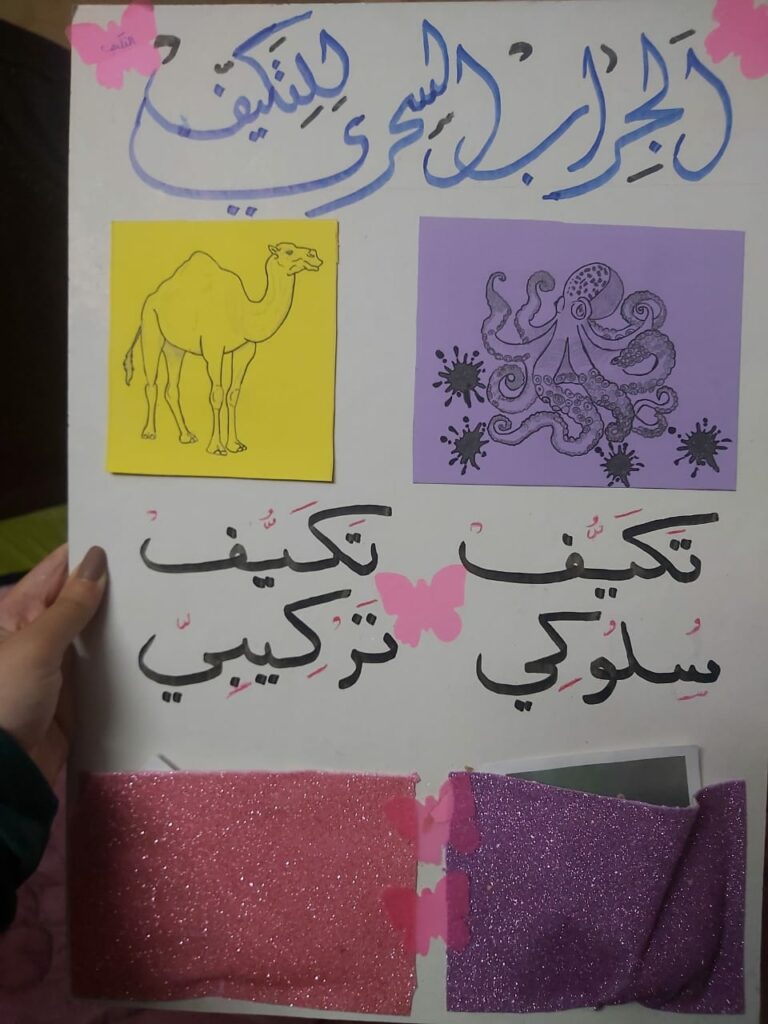 اَلجِراب السِحري لِلتَكيّف
التكيف
تَكَيُّفْ
سُلوُكِي
تَكَيُّفْ
تَرْكِيبِيّ